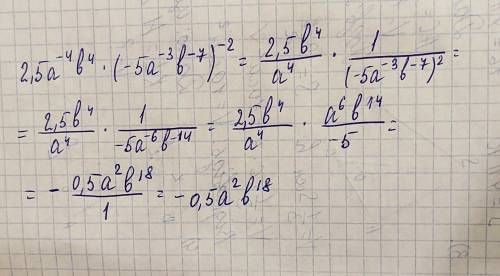 2,5a⁻⁴b⁴ · (-5a⁻³b⁻⁷)⁻² = 2,5b⁴/a⁴ · 1/(-5a⁻³b⁻⁷)² =
= 2,5b⁴/a⁴ · 1/-5a⁻⁶b⁻¹⁴ = 2,5b⁴/a⁴ · a⁶b¹⁴/-5 =
= - 0,5a²b¹⁸/1 = -0,5a²b¹⁸